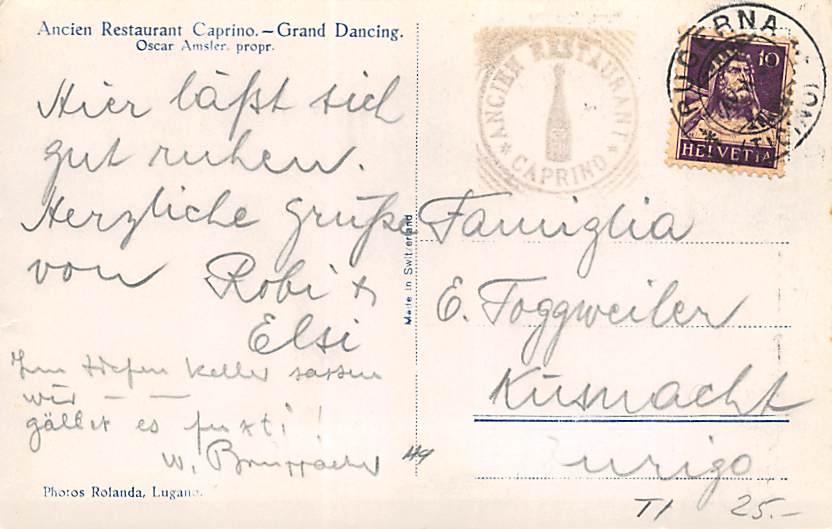 Ancien Restaurant Caprino.—Grand Dancing.
Oscar Amsler, propr.
ANCIEN RESTAURANT
* CAPRINO *
10
HELVETIA
Hier läßt sich
gut ruhen.
Herzliche Grüße
von Robi &
Elsi
Im tiefen Keller sassen
wir — —
gället es
W.
Made in Switzerland
Famiglia
E. Toggweiler
Küsnacht
Zurigo
49
TI 25.-
Photos Rolanda, Lugano.